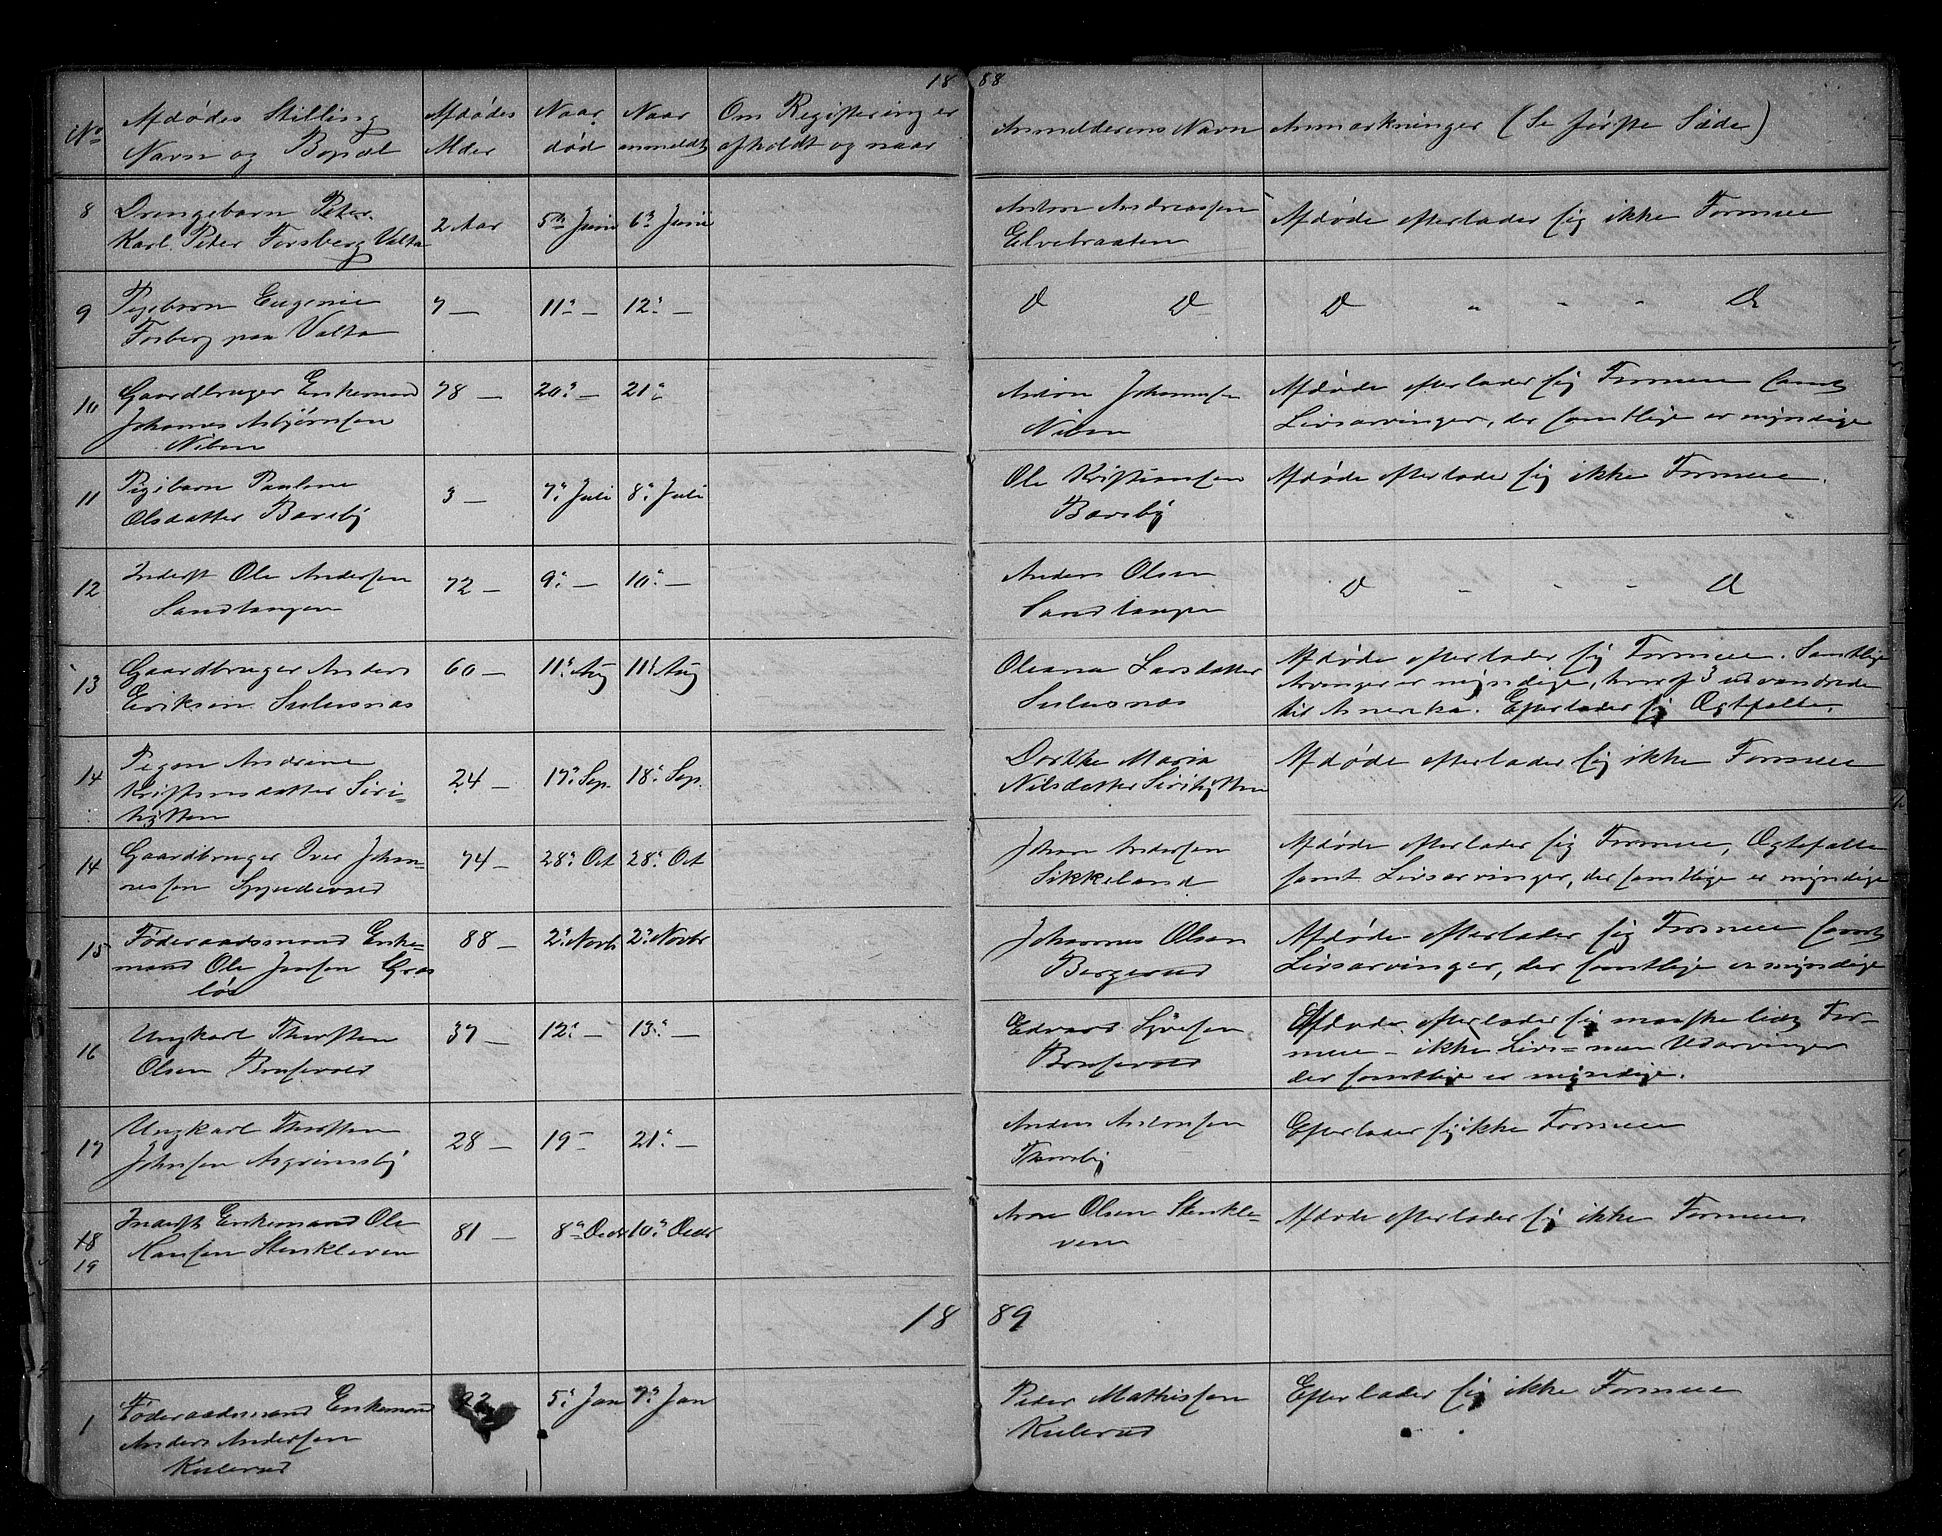 18 88
No Afdødes Stilling Afdødes Naar Naar Om Registering er Anmelderens Navn Anmærkninger (Se første Side)
Navn og Bopæl Alder død anmeldt afholdt og naar
8 Drengebarn Peter 2 Aar 5te Juni 6te Juni Anton Andreassen Afdøde efterlader sig ikke Formue
Karl Peter Forsberg Valta Elvebraaten
9 Pigebarn Eugenie 7 — 11te — 12te — D D D " " " D
Forberg paa Valta
10 Gaardbruger Enkemand 78 — 20de — 21de Anton Johannesen Afdøde efterlader sig Formue samt
Johannes Asbjørnsen Niben Livsarvinger, der samtlige er myndige
Niben
11 Pigebarn Pauline 3 — 7de Juli 8de Juli Ole Kristiansen Afdøde efterlader sig ikke Formue.
Olsdatter Bareby Bareby
12 Inderst Ole Andersen 72 — 9de — 10de — Anders Olsen D " " " D
Sandtangen Sandtangen
13 Gaardbruger Anders 60 — 11te Aug 11te Aug Oleana Larsdatter Afdøde efterlader sig Formue. Samtlige
Eriksen Sulusnæs Sulusnæs Arvinger er myndige, hvoraf 3 udvandrede
til Amerika. Efterlader sig Ægtefælle.
14 Pigen Andrine 24 — 17de Sep. 18de Sep. Dorthe Maria Afdøde efterlader sig ikke Formue
Kristiansdatter Siri- Nilsdatter Sirihytten
hytten
14 Gaardbruger Iver Johan- 74 — 28de Oct 28de Oct Johan Andersen Afdøde efterlader sig Formue, Ægtefælle
nessen Sikkeland samt Livsarvinger, der samtlige er myndige
15 Føderaadsmand Enke- 88 — 2de Novbr 2de Novbr Johannes Olsen Afdøde efterlader sig Formue samt
mand Ole Jensen Græs Bergerud Livsarvinger, der samtlige er myndige
løs
16 Ungkarl Thorsten 37 — 12te — 13de — Edvard Syversen Afdøde efterlader sig manske lidt For-
Olsen Brusevold Brusevold mue – ikke Livs= men Udarvinger
der samtlige er myndige.
17 Ungkarl Thorsten 28 — 19 — 21de — Anders Antonsen Efterlader sig ikke Formue
Johnsen Asgrimsby Thoresby
18 Inderst Enkemand Ole 81 — 8de Decbr 10de Decbr Arne Olsen Stenkle- Afdøde efterlader sig ikke Formue
19 Hansen Stenkleven ven
18 89
1 Føderaadsmand Enkemand 92 5te Jan 7de Jan Peder Mathissen Efterlader sig ikke Formue
Anders Andersen Kulerud
Kulerud